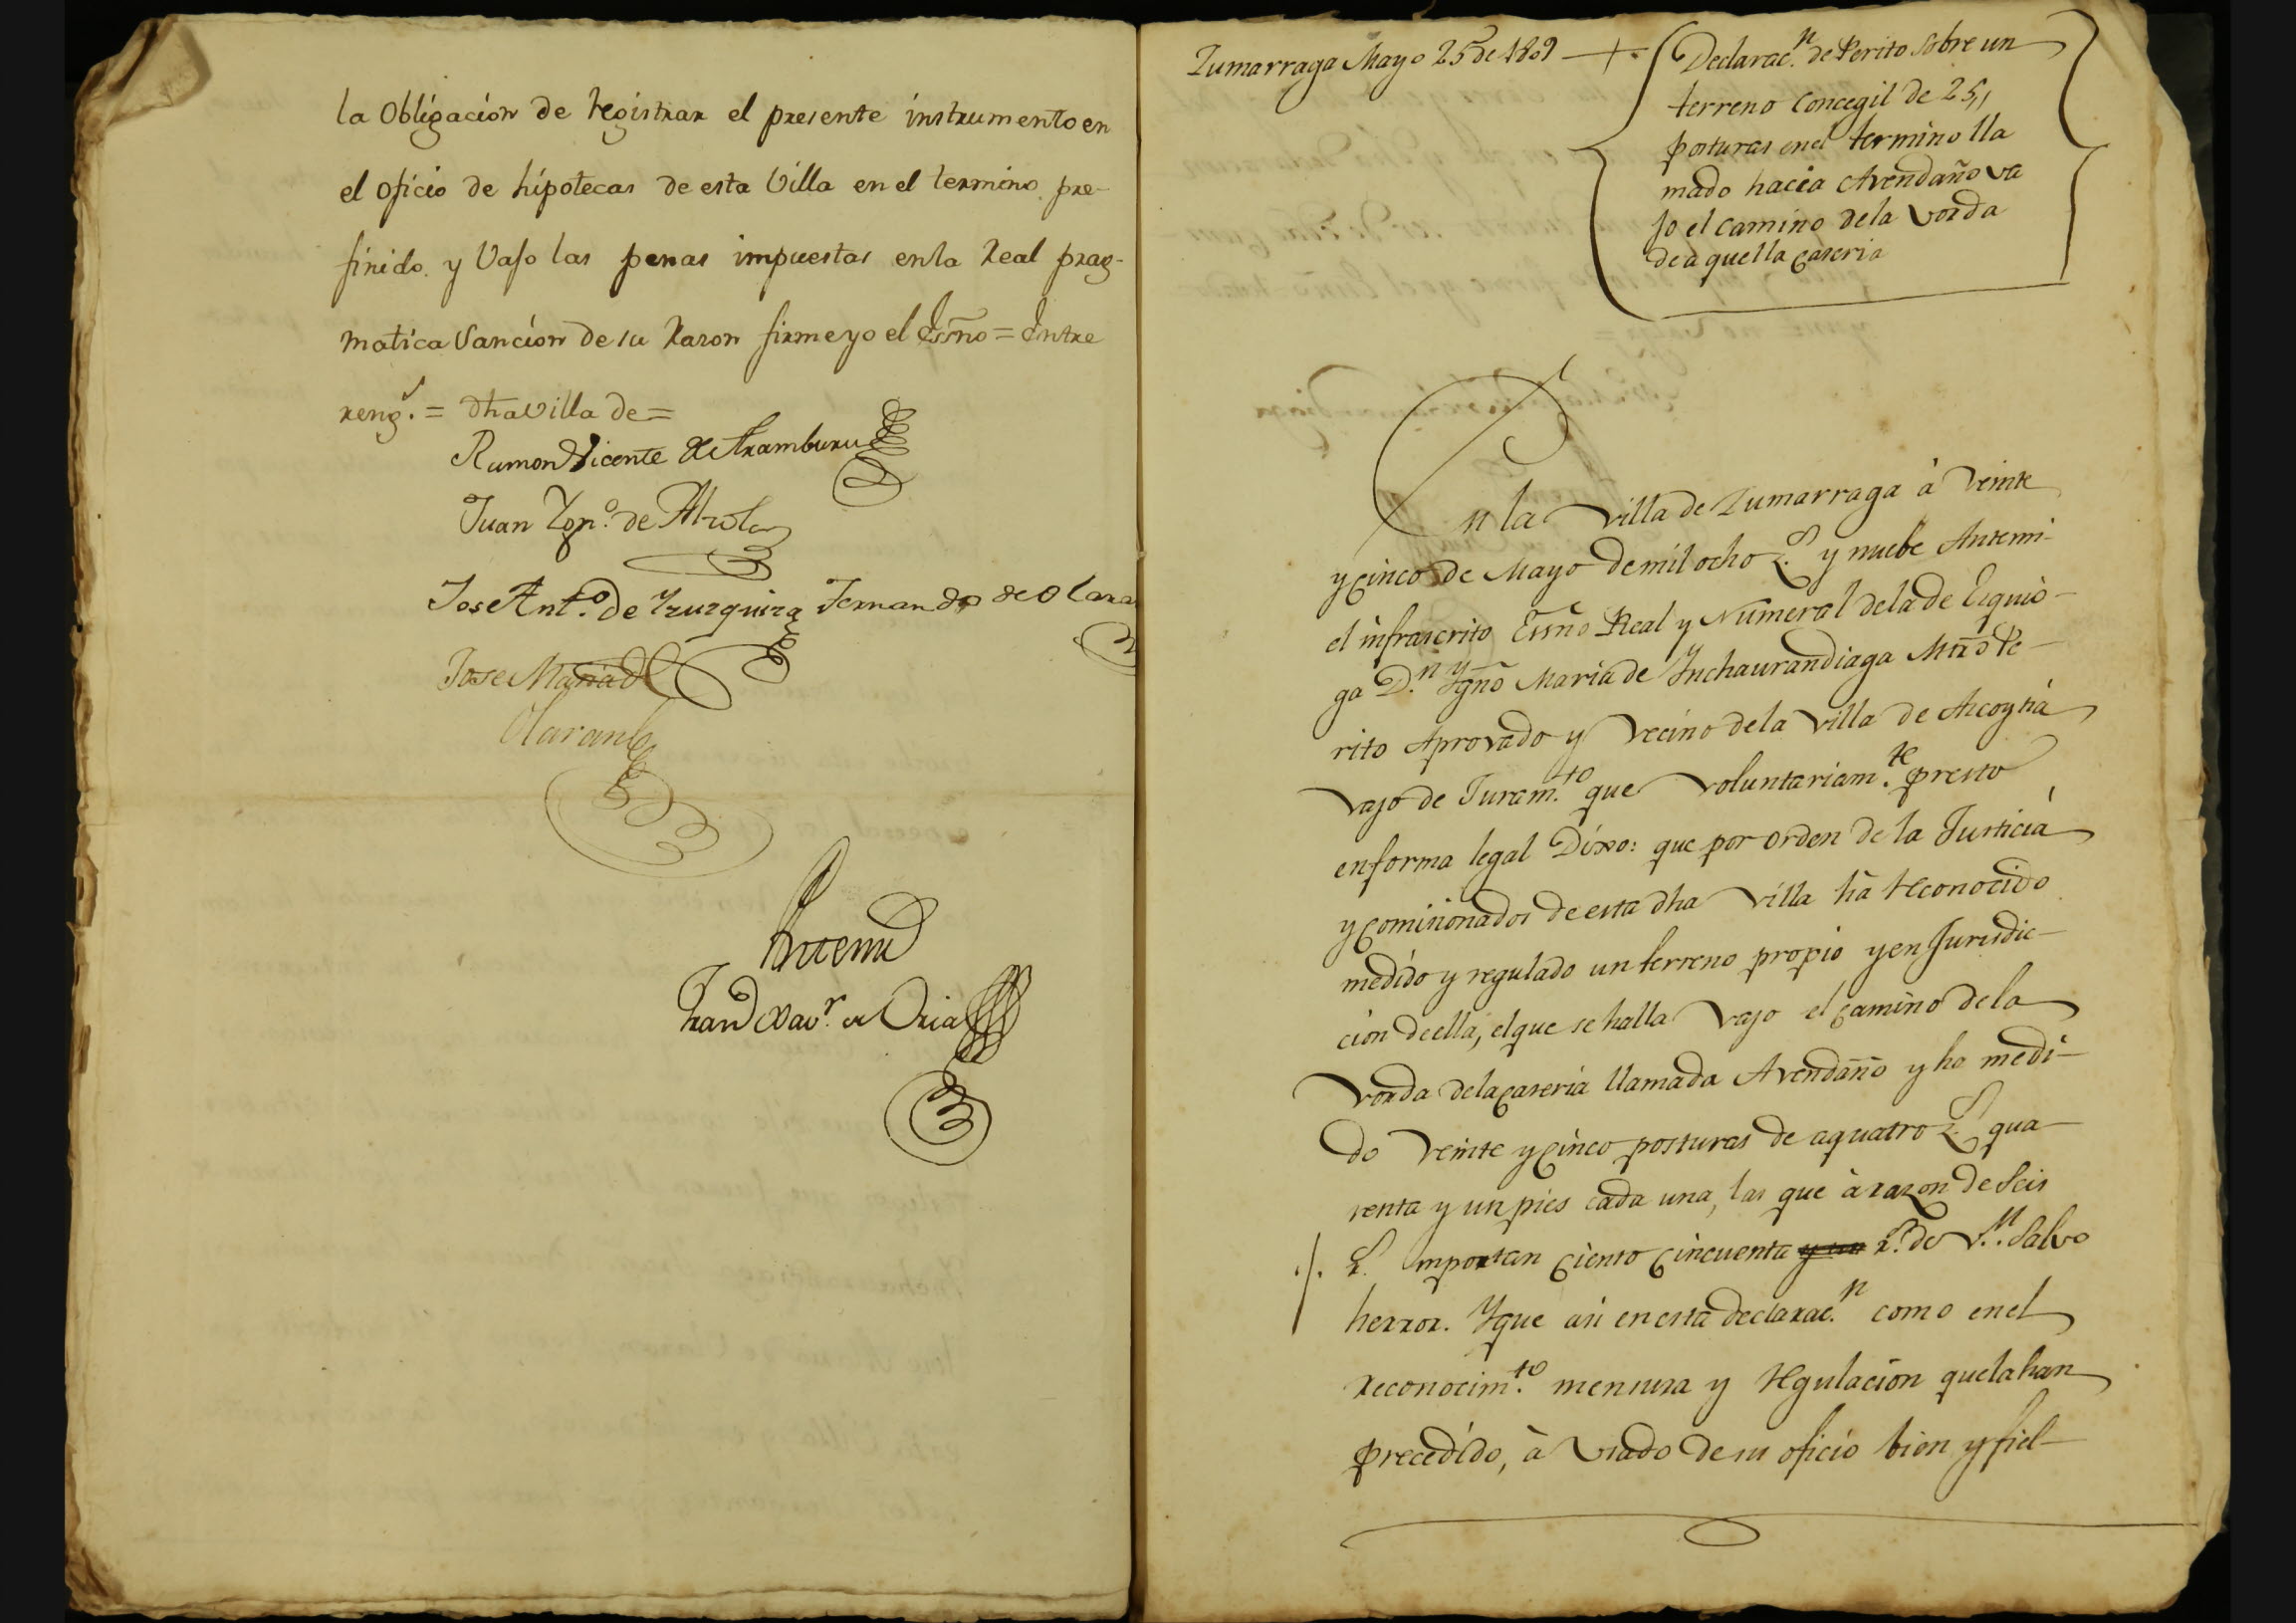 la Obligación de registrar el presente instrumento en
el oficio de hipotecas de esta Villa en el termino pre-
finido. y Vajo las penas impuestas en la Real prag-
matica Sanción de su razon firme yo el Essño = Entre
reng.s = dha villa de =
Ramon Vicente de Aramburu
Juan Ygn.º de Alzola
Jose Ant.º de Yzuzquiza Fernando de Olara
Jose Maria de
Olaran
Antemi
Fran.co Xav.r de Oria
Zumarraga Mayo 25 de 1809
Declarac.n de Perito sobre un
terreno Concegil de 25,,
posturas en el termino lla
mado hacia Avendaño va
jo el camino de la vorda
de aquella caseria
En la villa de Zumarraga à veinte
y cinco de Mayo de mil ocho z.s y nuebe Antemi
el infrascrito Essño Real y Numeral de la de Ezquio-
ga D.n Ygnº Maria de Ynchaurandiaga Mrõ Pe-
rito Aprovado y vecino de la villa de Azcoytia
vajo de Juram.to que voluntariam.te presto
en forma legal Dixo: que por orden de la Justicia
y comisionados de esta dha villa hà reconocido
medido y regulado un terreno propio y en Jurisdic-
cion de ella, el que se halla vajo el camino de la
vorda de la caseria llamada Avendaño y ha medi-
do veinte y cinco posturas de a quatro z.s qua-
renta y un pies cada una, las que à razon de seis
r.s importan ciento cincuenta y un r.s de v.n salvo
herror. Y que asi en esta declarac.n como en el
reconocim.to mensura y regulacion que la han
precedido, à usado de su oficio bien y fiel-